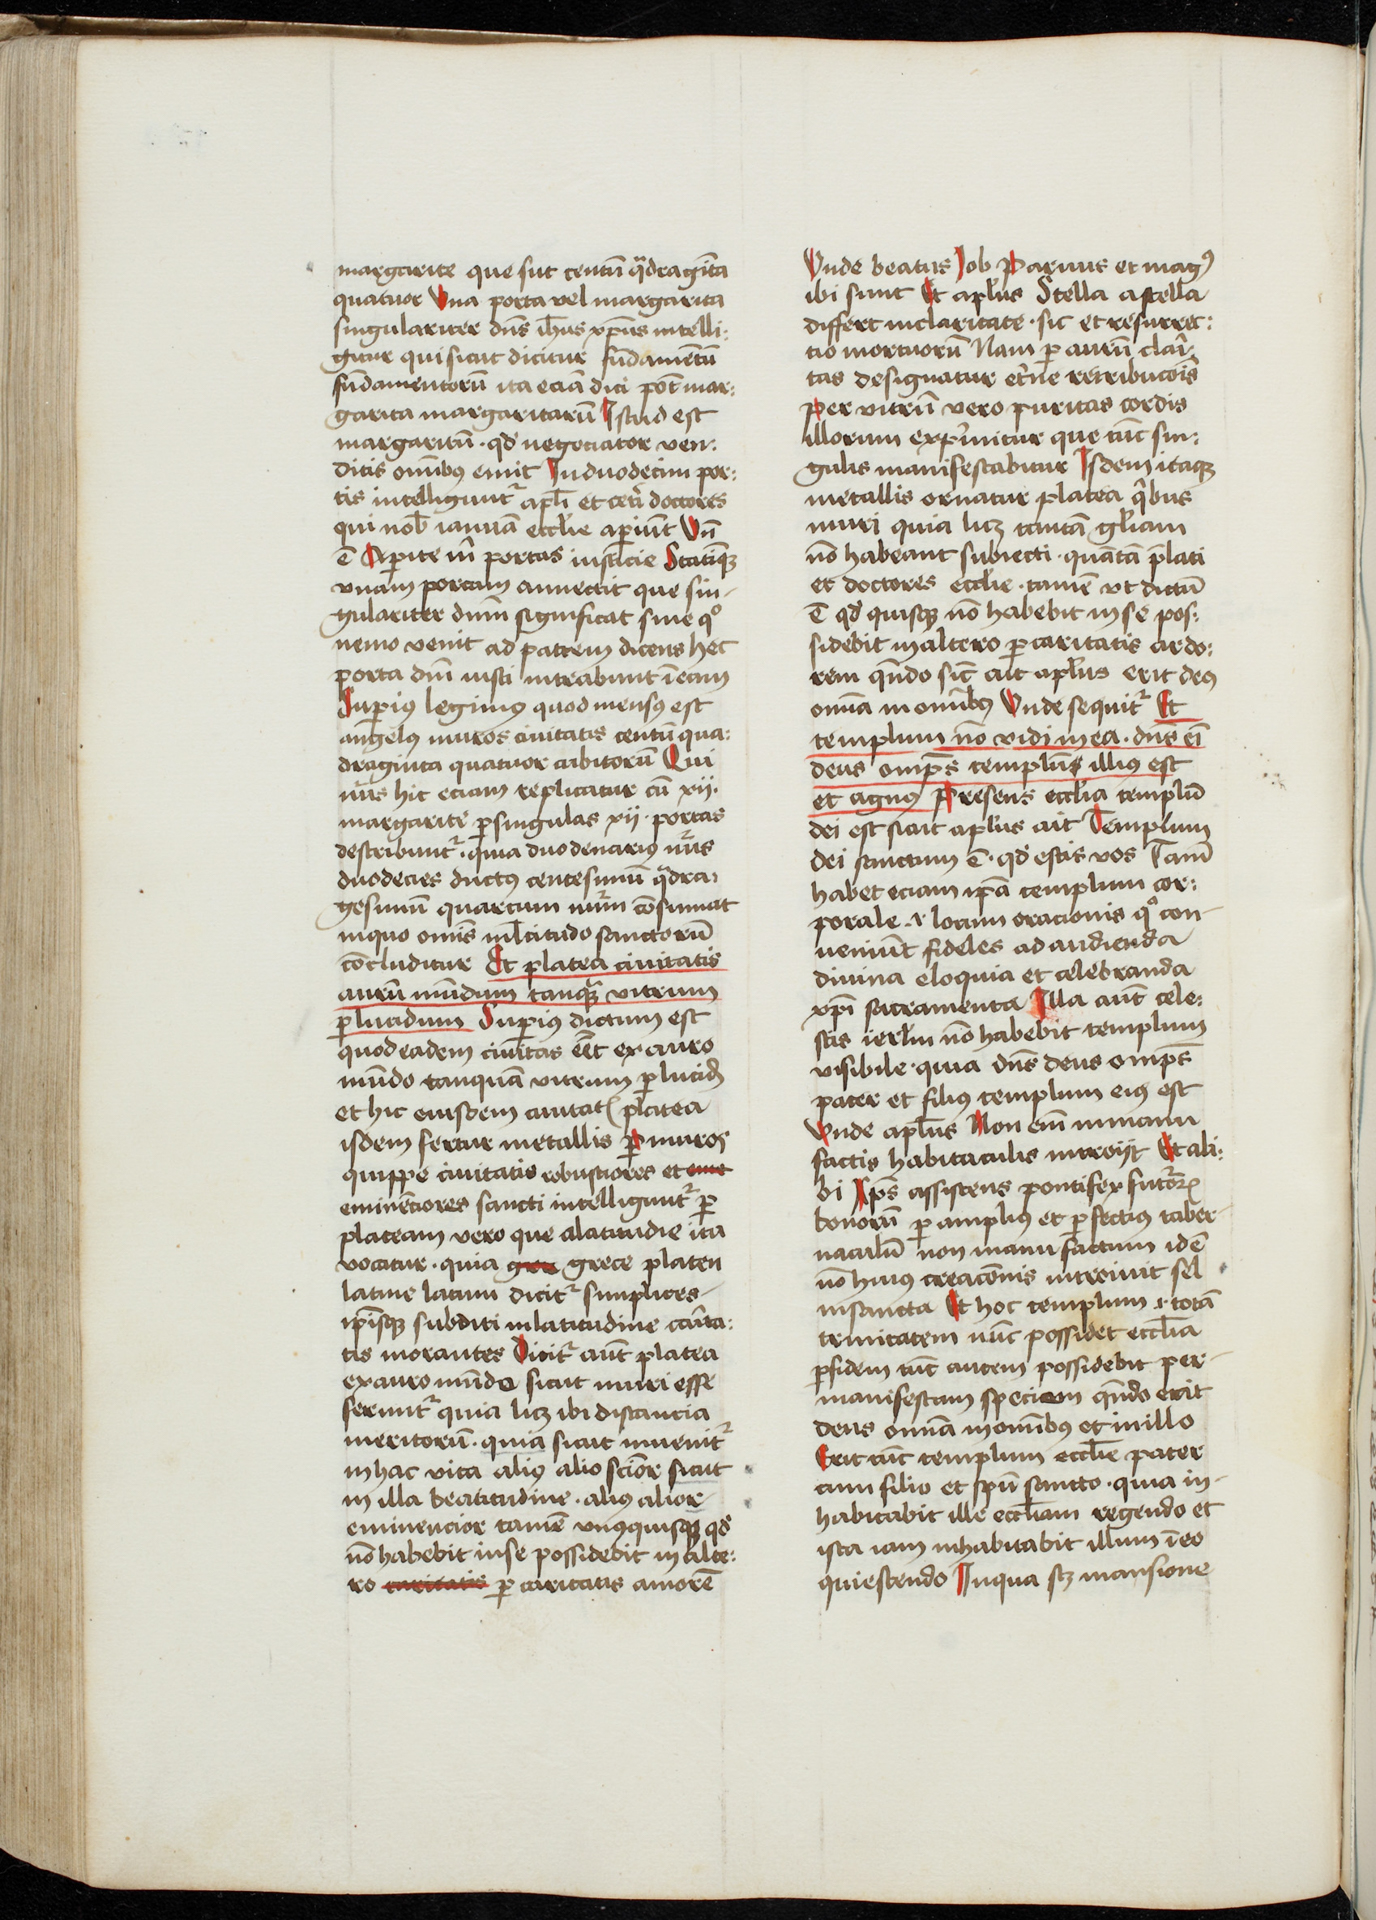 margarite que sut centū q̄dragīta
quatuor Vna porta vel margarita
singulariter dn̄s ih̄us xp̄us intelli:
gitur qui sicut dicitur fūdamentū
fūdamentorū ita eciā dici pōt mar:
garita margaritarū Istud est
margaritū · qd̕ negociator ven:
ditis om̄ibus emit In duodecim por:
tis intelligunt᷑ apl̄i et cet̄i doctores
qui nob̄ ianuā eccl̄ie aperiūt Vn̄
ē Aperite m̄ portas iusticie Statīq̢
vnam portam annectit que sin-
gulariter dn̄m significat sine qͦ
nemo venit ad patrem dicens hec
porta dn̄i iusti intrabunt ī eam
Superiꝰ legimꝰ quod mensꝰ est
angelꝰ muros ciuitatis centū qua:
draginta quatuor cubitorū Qui
nūs hic eciam replicatur cū xij ·
margarite ꝑ singulas xij · portas
describunt᷑ · quia duodenariꝰ nūs
duodecies ductꝰ centesimū q̄dra:
gesimū quartum nūm cōsumat
in quo om̄is ml̄titudo sanctorū
cōcluditur Et platea ciuitatis
aurū mūdum tanqᷓ vitrum
ꝑlucidum Superiꝰ dictum est
quod eadem ciuitas eēt ex auro
mūdo tanquā vitrum ꝑlucid̄
et hic eiusdem ciuitatꝭ platea
isdem fertur metallis ꝑ muros
quippe ciuitatis robustiores et eme
eminēciores sancti intelligunt᷑ ꝑ
plateam vero que a latitudīe ita
vocatur · quia gre grece platen
latine latum dicit᷑ simplices
ip̄isq̢ subditi in latitudine carīta:
tis morantes Dicit᷑ aūt platea
ex auro mūdo sicut muri esse
ferunt᷑ quia licꝫ ibi distancia
meritorū · quia sicut inuenit᷑
in hac vita aliꝰ alio sc̄ior sicut
in illa beatitudine · aliꝰ alior
eminencior tamē vnꝰquisq̢ qd̕
nō habebit in se possidebit in alte:
ro caritatis ꝑ caritatis amorē
Vnde beatus Job Paruus et magꝰ
ibi sunt Et apl̄us Stella a stella
differt in claritate · sic et resurrec:
tio mortuorū Nam ꝑ aurū clāi-
tas designatur et̄ne retribucōis
Per vitrū vero puritas cordis
illorum exp̄mitur que tūc sin:
gulis manifestabitur Isdem itaq̢
metallis ornatur platea q̄bus
muri quia licꝫ tantā gl̄iam
nō habeant subiecti · quātā p̄lati
et doctores eccl̄ie · tamē vt dictū
ē qd̕ quisq̢ nō habebit in se pos:
sidebit in altero ꝑ caritatis ardo:
rem qn̄do sic̄ ait apl̄us erit deꝰ
omīa in om̄ibꝰ Vnde sequit᷑ Et
templum nō vidi in ea · dn̄s eī
deus omp̄s templū illiꝰ est
et agnꝰ Presens eccl̄ia templū
dei est sicut apl̄us ait Templum
dei sanctum ē · qd̕ estis vos Tamē
habet eciam ip̄a templum cor:
porale · i · locum oracionis qͦ con-
ueniūt fideles ad audienda
diuina eloquia et celebranda
xp̄i sacramenta Illa aūt cele:
stis ierl̄m nō habebit templum
visibile · quia dn̄s deus omp̄s
pater et filiꝰ templum eiꝰ est
Vnde apl̄us Non em̄ in manu
factis habitaculis introijt Et ali:
bi Xp̄s assistens pontifex futꝛoꝝ
bonorū ꝑ ampliꝰ et ꝑfectiꝰ taber-
naculū non manu factum id ē
nō huiꝰ creacōnis introiuit sēl
in sancta Et hoc templum · i · totā
trinitatem nūc possidet eccl̄ia
ꝑ fidem tūc autem possidebit per-
manifestam speciem qn̄do erit
deus omīa in om̄ibꝰ et in illo
Erit tūc templum eccl̄ie pater
cum filio et spū sancto · quia in-
habitabit ille eccl̄iam regendo et
ista iam inhabitabit illum ī eo
quiescendo In qua scꝫ mansione